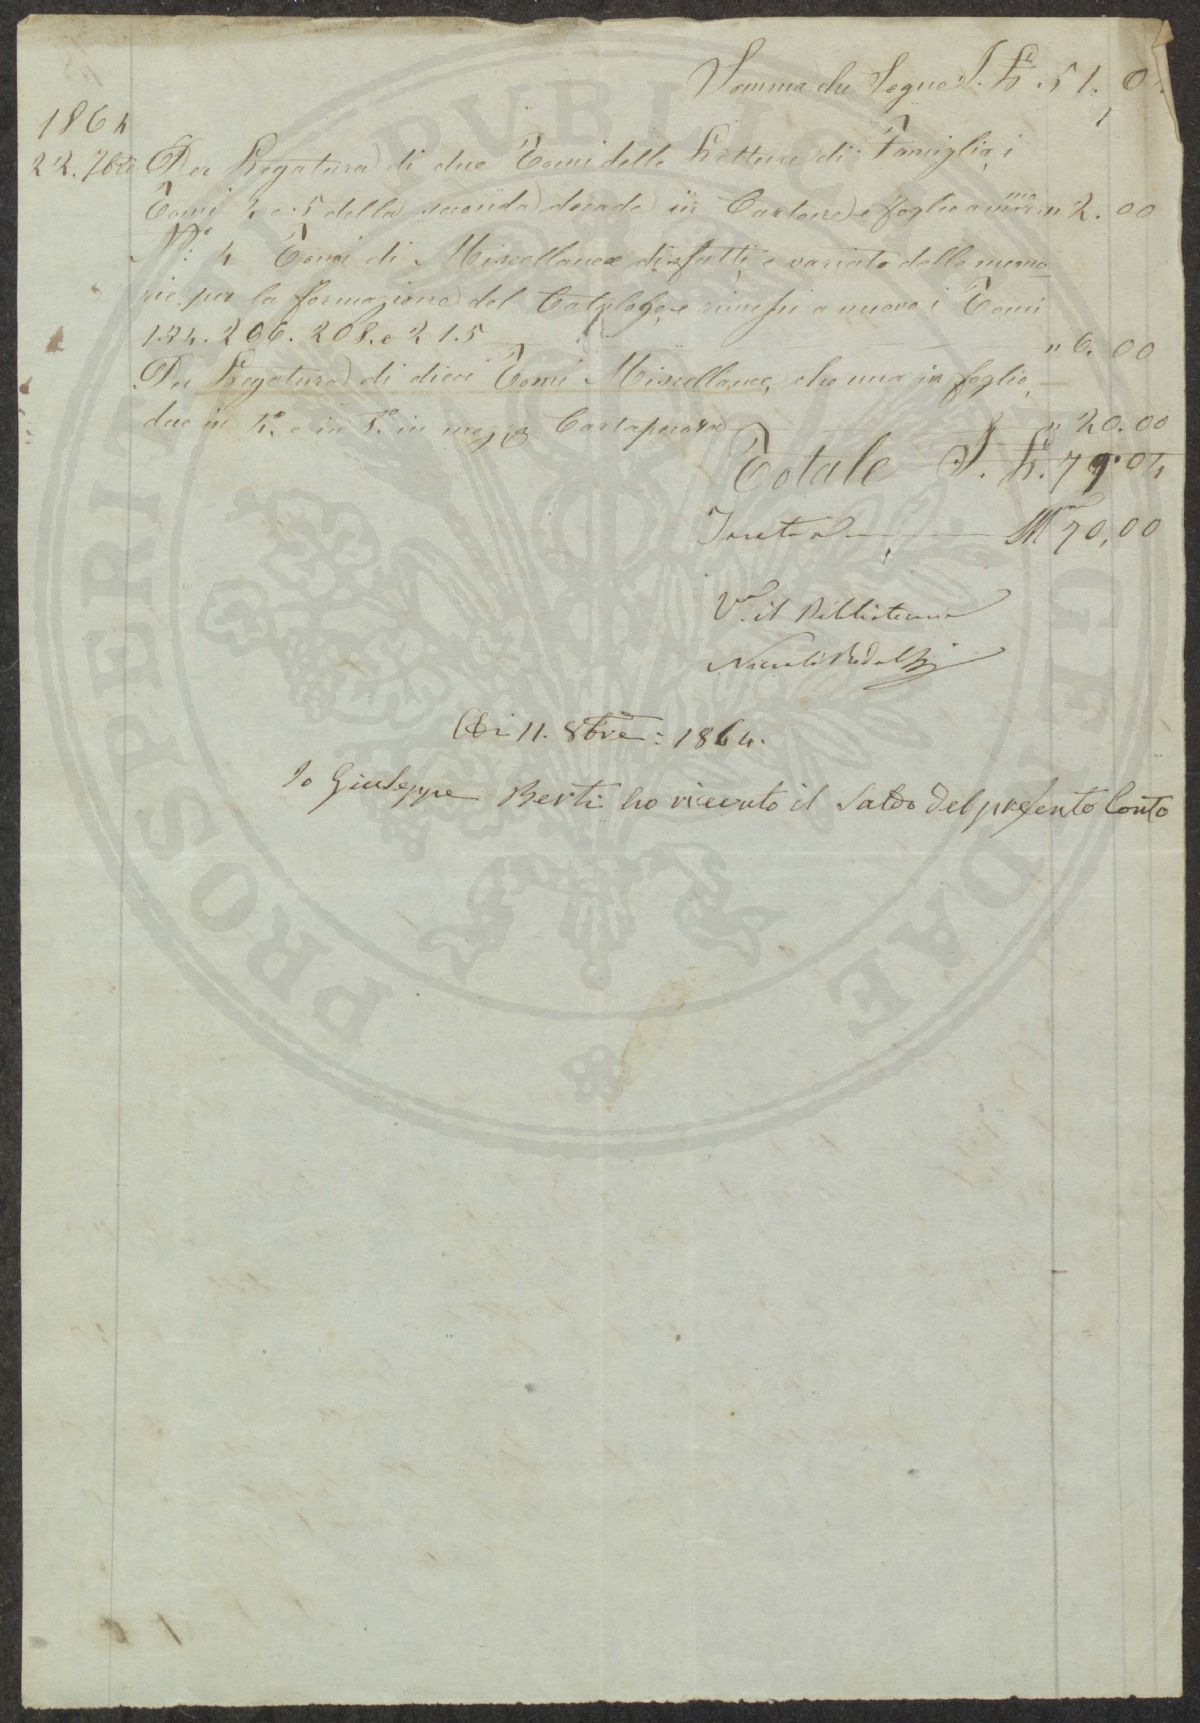 Somma che Segue I. L. 51. 0
1864
22. 7bre Per Legatura di due Tomi delle Letture di Famiglia, i
Tomi 4 e 5 della seconda decade in Cartone e foglio a mar.mo " 2. 00
N.° 4 Tomi di Miscellanea disfatti, e variato delle memo
rie per la formazione del Catalogo, e rimessi a nuovo i Tomi
134. 206. 208. e 215 " 6. 00
Per Legatura di dieci Tomi Miscellanee, che una in foglio,
due in 4.° e in 8.° in mezza Cartapecora " 20. 00
Totale I. L. 79. 04
70,00
V.° il Bibliotecario
Adi 11. 8bre: 1864.
Io Giuseppe Berti ho ricevuto il Saldo del presente Conto
PUBLICAE
PROSPERITATI